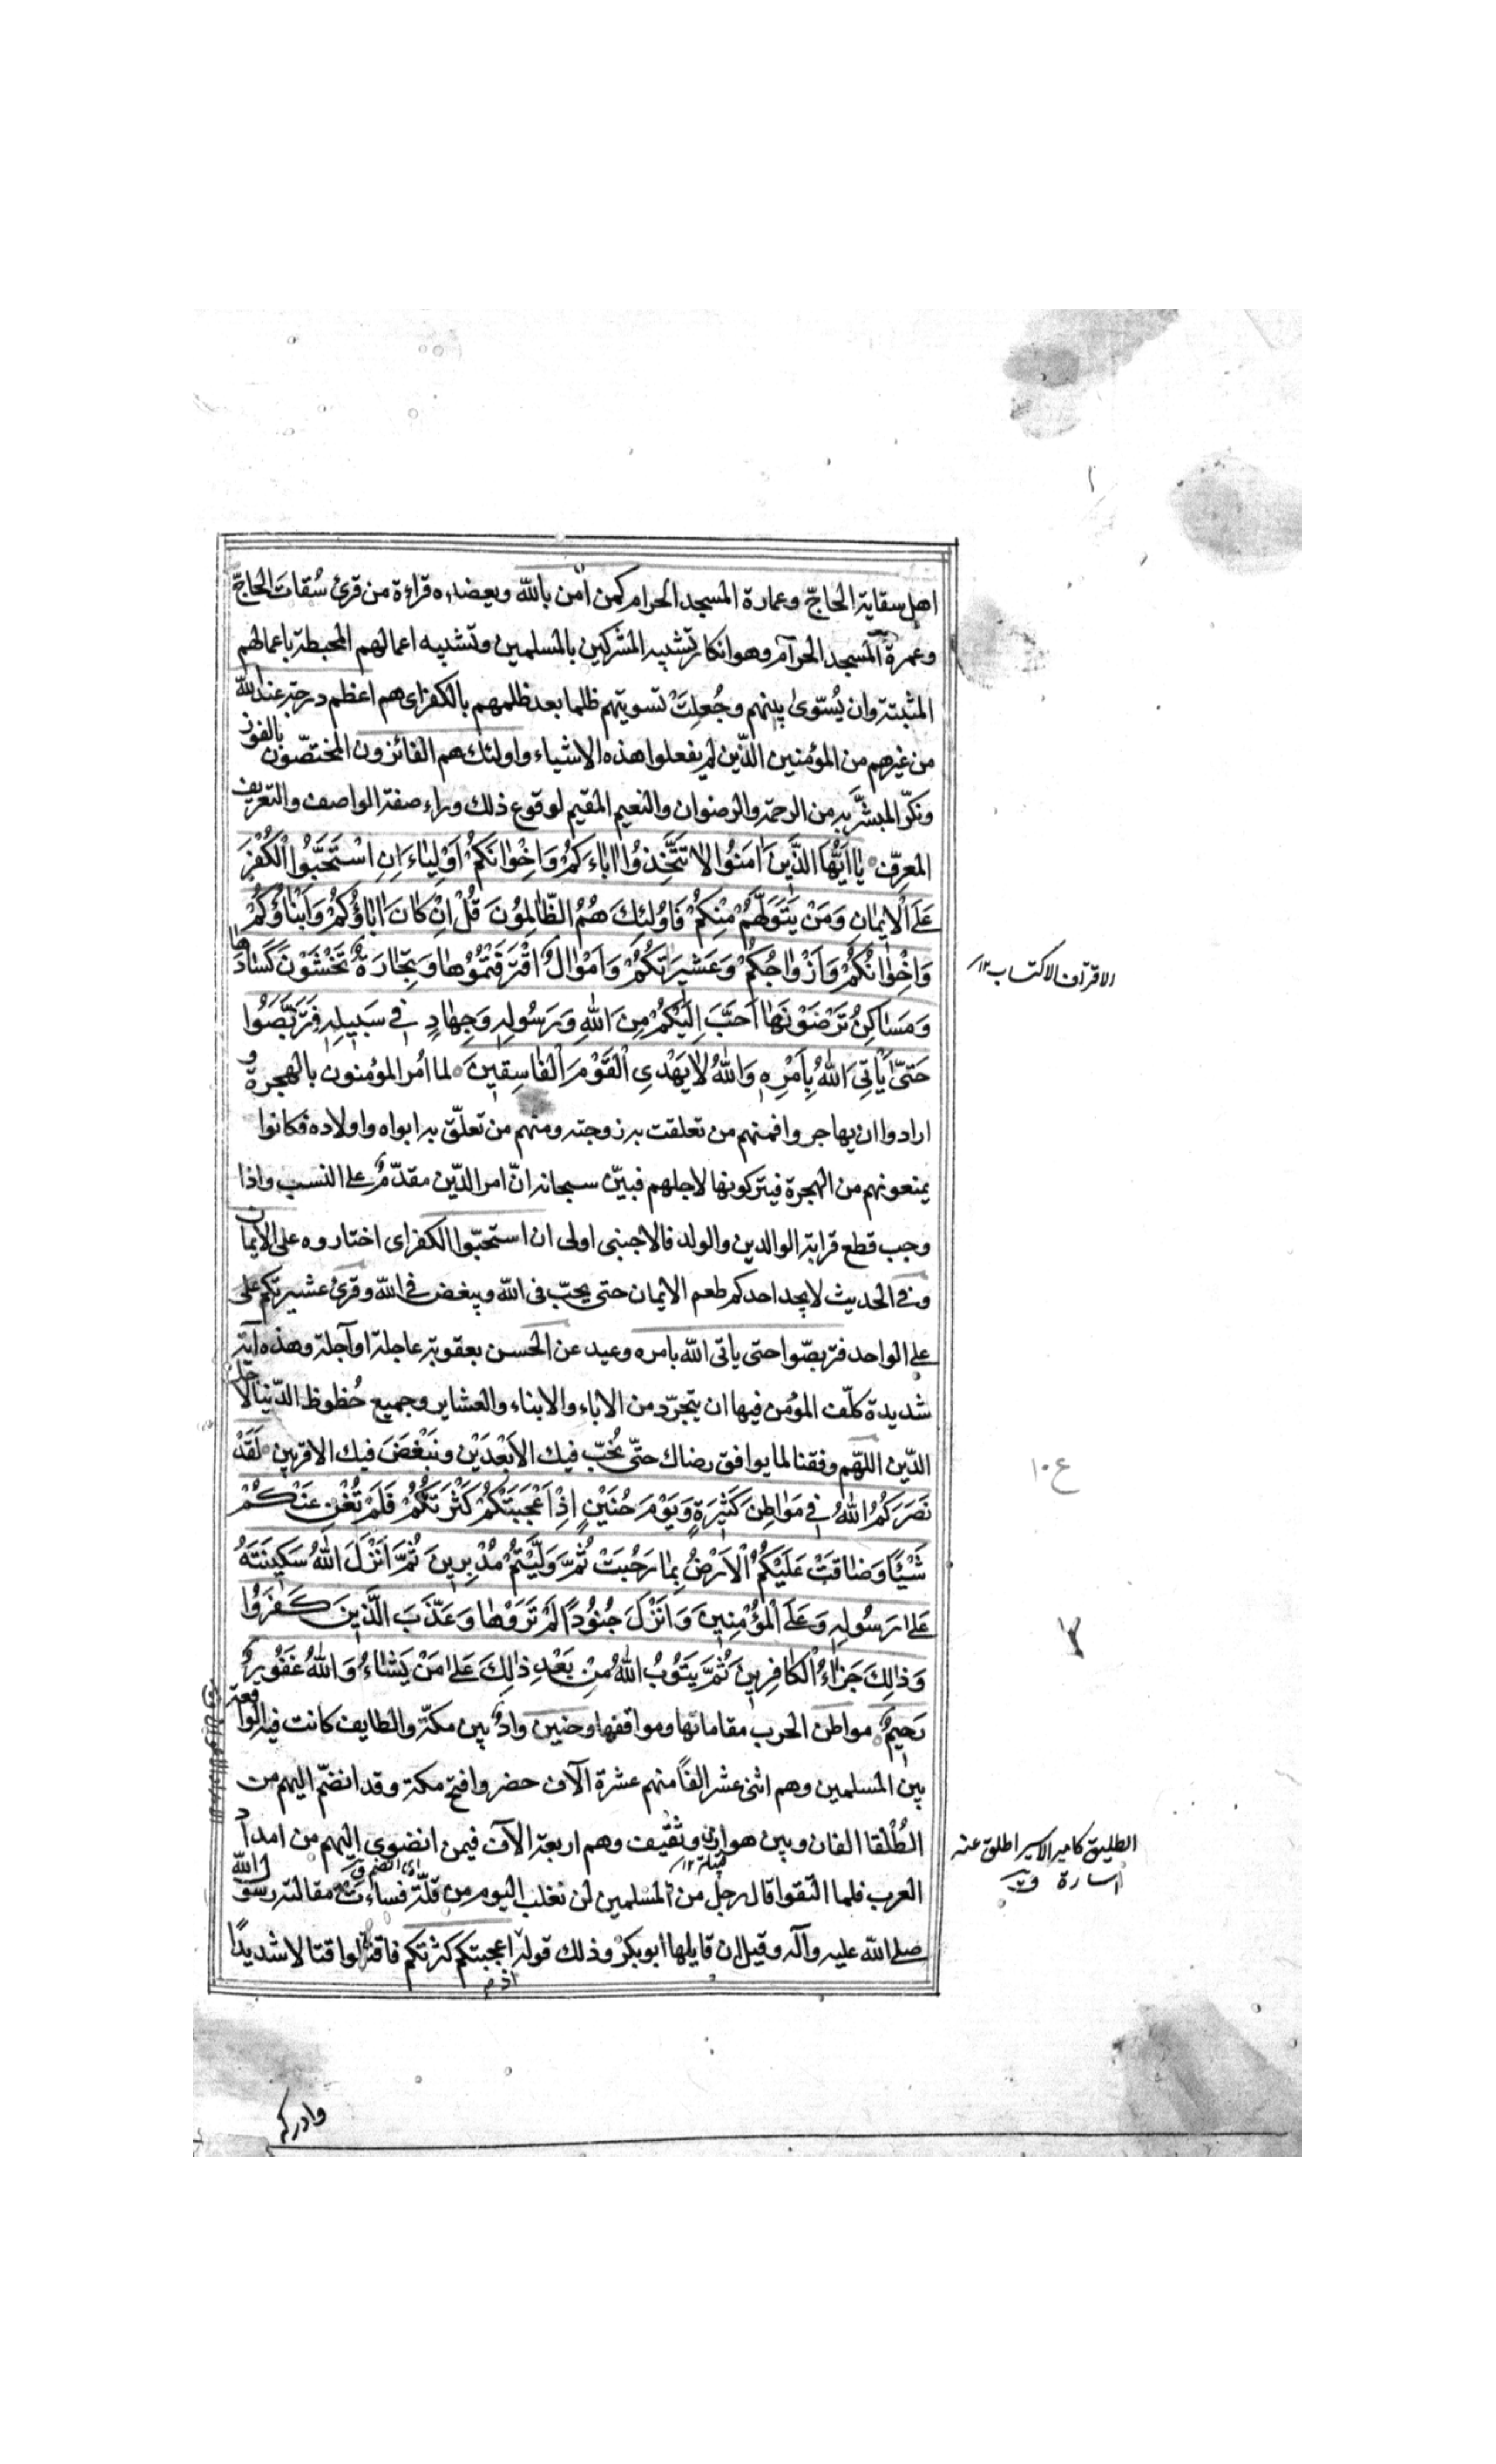 اهل سقاية الحاجّ وعمارة المسجد الحرام كمن اٰمن بالله ويعضده قراءة من قرئ سُقات الحاجّ
وعمرة المسجد الحرام وهو انكار تشبيه المشركين بالمسلمين وتشبيه اعمالهم المحبطة باعمالهم
المثبتة وان يُسّوىٰ بينهم وجُعِلَتْ تسويتهم ظلما بعد ظلمهم بالكفر اى هم اعظم درجة عند الله
من غيرهم من المؤمنين الذّين لم يفعلوا هذه الاشياء واولئك هم الفائزون المختصّون بالفوز
ونكّر المبشَّر به من الرحمة والرضوان والنعيم المقيم لوقوع ذلك وراء صفة الواصف والتعريف
المعرِفّ يٰا اَيُّهَا الذَّيِنَ اٰمَنُوا لاٰ تَتَّخِذوُا اٰباءَكُمْ وَاِخْوٰانَكُمْ اَوْلِيٰاءَ اِنِ اسْتَحَبُّوا الْكُفْرَ
عَلَى الْايمٰانِ وَمَنْ يَتَوَلَّهُمْ مِنْكُمْ فَاُولئِكَ هُمُ الظّٰالِمُونَ قُلْ اِنْ كٰانَ اٰبٰاؤُكُمْ وَاَبْنٰاؤُكُمْ
وَاِخْوٰانُكُمْ وَاَزْوٰاجُكُمْ وَعَشيرَاتُكُمْ وَاَمْوٰالٌ اقْتَرَفْتُمُوُهٰا وَتِجٰارَةٌ تَخْشَوْنَ كَسٰادَهٰا
وَمَسٰاكِنُ تَرْضَوْنَهٰا اَحَبَّ اِلَيْكُمْ مِنَ اللهِ وَرَسُولِهِ وَجِهٰادٍ فى سَبيلِهِ فَتَرَبَّصُوا
حَتىّٰ يَأْتِىَ اللهُ بِاَمْرِهِ وَاللهُ لاٰ يَهْدِى الْقَوْمَ الْفٰاسِقينَ لما امُر المؤمنون بالهجرة و
ارادوا ان يهاجروا فمنهم من تعلقت به زوجته ومنهم من تعلّق به ابواه واولاده فكانوا
يمنعونهم من الهجرة فيتركونها لاجلهم فبيّن سبحانه انّ امر الدّين مقدّمٌ على النسب واذا
وجب قطع قرابة الوالدين والولد فالاجنبى اولى ان استحبّوا الكفر اى اختاروه على الايمان
وفى الحديث لا يجد احدكم طعم الايمان حتى يحبّ فى الله ويبغض فى الله وقرئ عشيرتكم على
على الواحد فتربصّوا حتى ياتى الله بامره وعيد عن الحسن بعقوبة عاجلة او آجلة وهذه آية
شديدة كلّف المؤمن فيها ان يتجرّد من الاباء والابناء والعشاير وجميع حُظوظ الدّنيا لاجل
الدّين اللّهم وفقنا لما يوافق رضاك حتىّ نُحبّ فيك الاَبْعَدَيْن ونَبْغَضَ فيك الاقربين لَقَدْ
نَصَرَكُمُ اللهُ فى مَوٰاطِنَ كَثيرَةٍ وَيَوْمَ حُنَيْنٍ اِذْ اَعْجَبَتْكُمْ كَثْرَتُكُمْ فَلَمْ تُغْنِ عَنْكُمْ
شَيْئًا وَضٰاقَتْ عَلَيْكُمُ الْاَرْضُ بِمٰا رَحُبَتْ ثُمَّ وَلَّيْتُمْ مُدْبِرينَ ثُمَّ اَنْزَلَ اللهُ سَكينَتَهُ
عَلىٰ رَسُولِهِ وَعَلَى الْمُؤْمِنينَ وَاَنْزَلَ جُنُودًا لَمْ تَرَوْهٰا وَعَذَّبَ الَّذينَ كَفَرَوُا
وَذٰلِكَ جَزٰاءُ الْكٰافِرينَ ثُمَّ يَتُوبُ اللهُ مِنْ بَعْدِ ذٰلِكَ عَلىٰ مَنْ يَشٰاءُ وَاللهُ غَفُورٌ
رَحيمٌ مواطن الحرب مقاماتها ومواقفها وحنين وادٌ بين مكة والطايف كانت فيه الواقعة
بين المسلمين وهم اثنى عشر الفاً منهم عشرة الآف حضروا فتح مكة وقد انضمّ اليهم من
الطُلقا الفان وبين هوازن وثقيف وهم اربعة الآف فيمن انضوى اليهم من امداد
قبيلة ١٢
اى انضم ق
العرب فلما التقوا قال رجل من المسلمين لن نغلب اليوم من قلّة فساءت مقالته رسول الله
صلى الله عليه وآله وقيل ان قايلها ابو بكر وذلك قوله اعجبتكم كثرتكم فاقتتلوا قتالا شديدًا
اذ م
الاقتراف الاكتساب ١٢
ع ١٠
الطليق كامير الاسير اطلق عنه
اسارة ق
وادركم